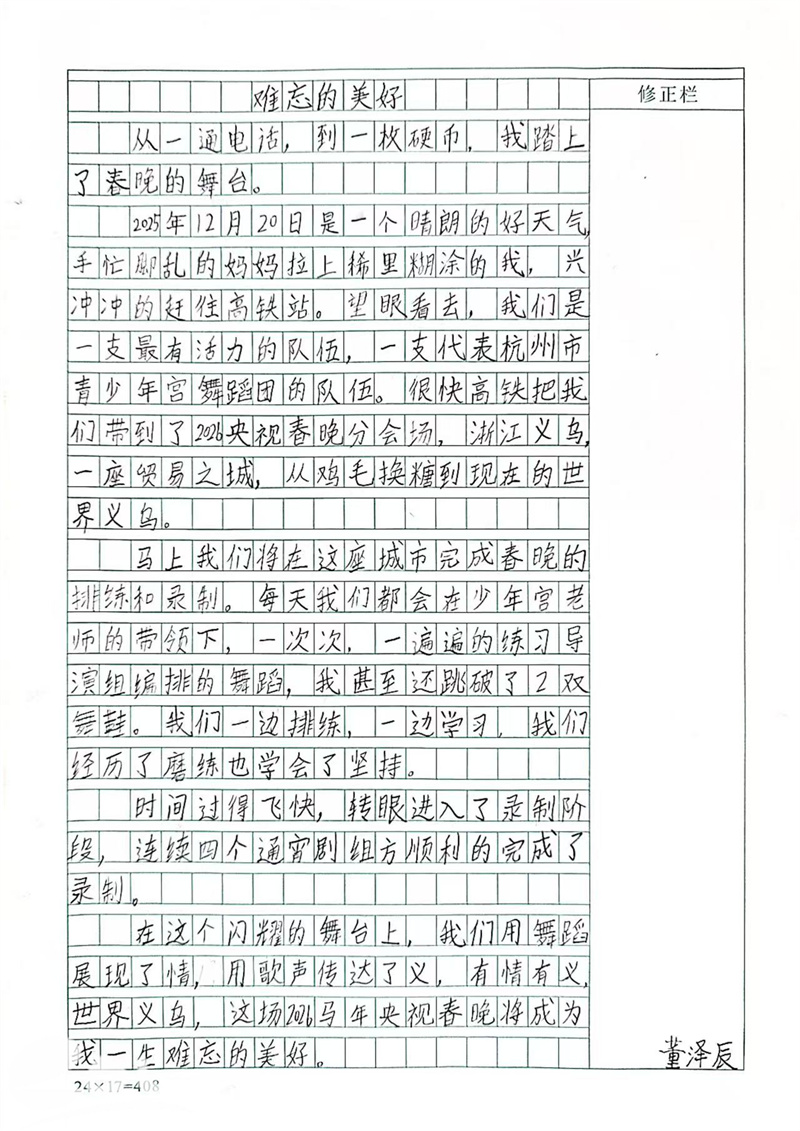 难忘的美好
修正栏
从一通电话，到一枚硬币，我踏上
了春晚的舞台。
2025年12月20日是一个晴朗的好天气，
手忙脚乱的妈妈拉上稀里糊涂的我，兴
冲冲的赶往高铁站。望眼看去，我们是
一支最有活力的队伍，一支代表杭州市
青少年宫舞蹈团的队伍。很快高铁把我
们带到了2026央视春晚分会场，浙江义乌，
一座贸易之城，从鸡毛换糖到现在的世
界义乌。
马上我们将在这座城市完成春晚的
排练和录制。每天我们都会在少年宫老
师的带领下，一次次，一遍遍的练习导
演组编排的舞蹈，我甚至还跳破了2双
舞鞋。我们一边排练，一边学习，我们
经历了磨练也学会了坚持。
时间过得飞快，转眼进入了录制阶
段，连续四个通宵剧组方顺利的完成了
录制。
在这个闪耀的舞台上，我们用舞蹈
展现了情，用歌声传达了义，有情有义，
世界义乌，这场2026马年央视春晚将成为
我一生难忘的美好。
董泽辰
24×17=408